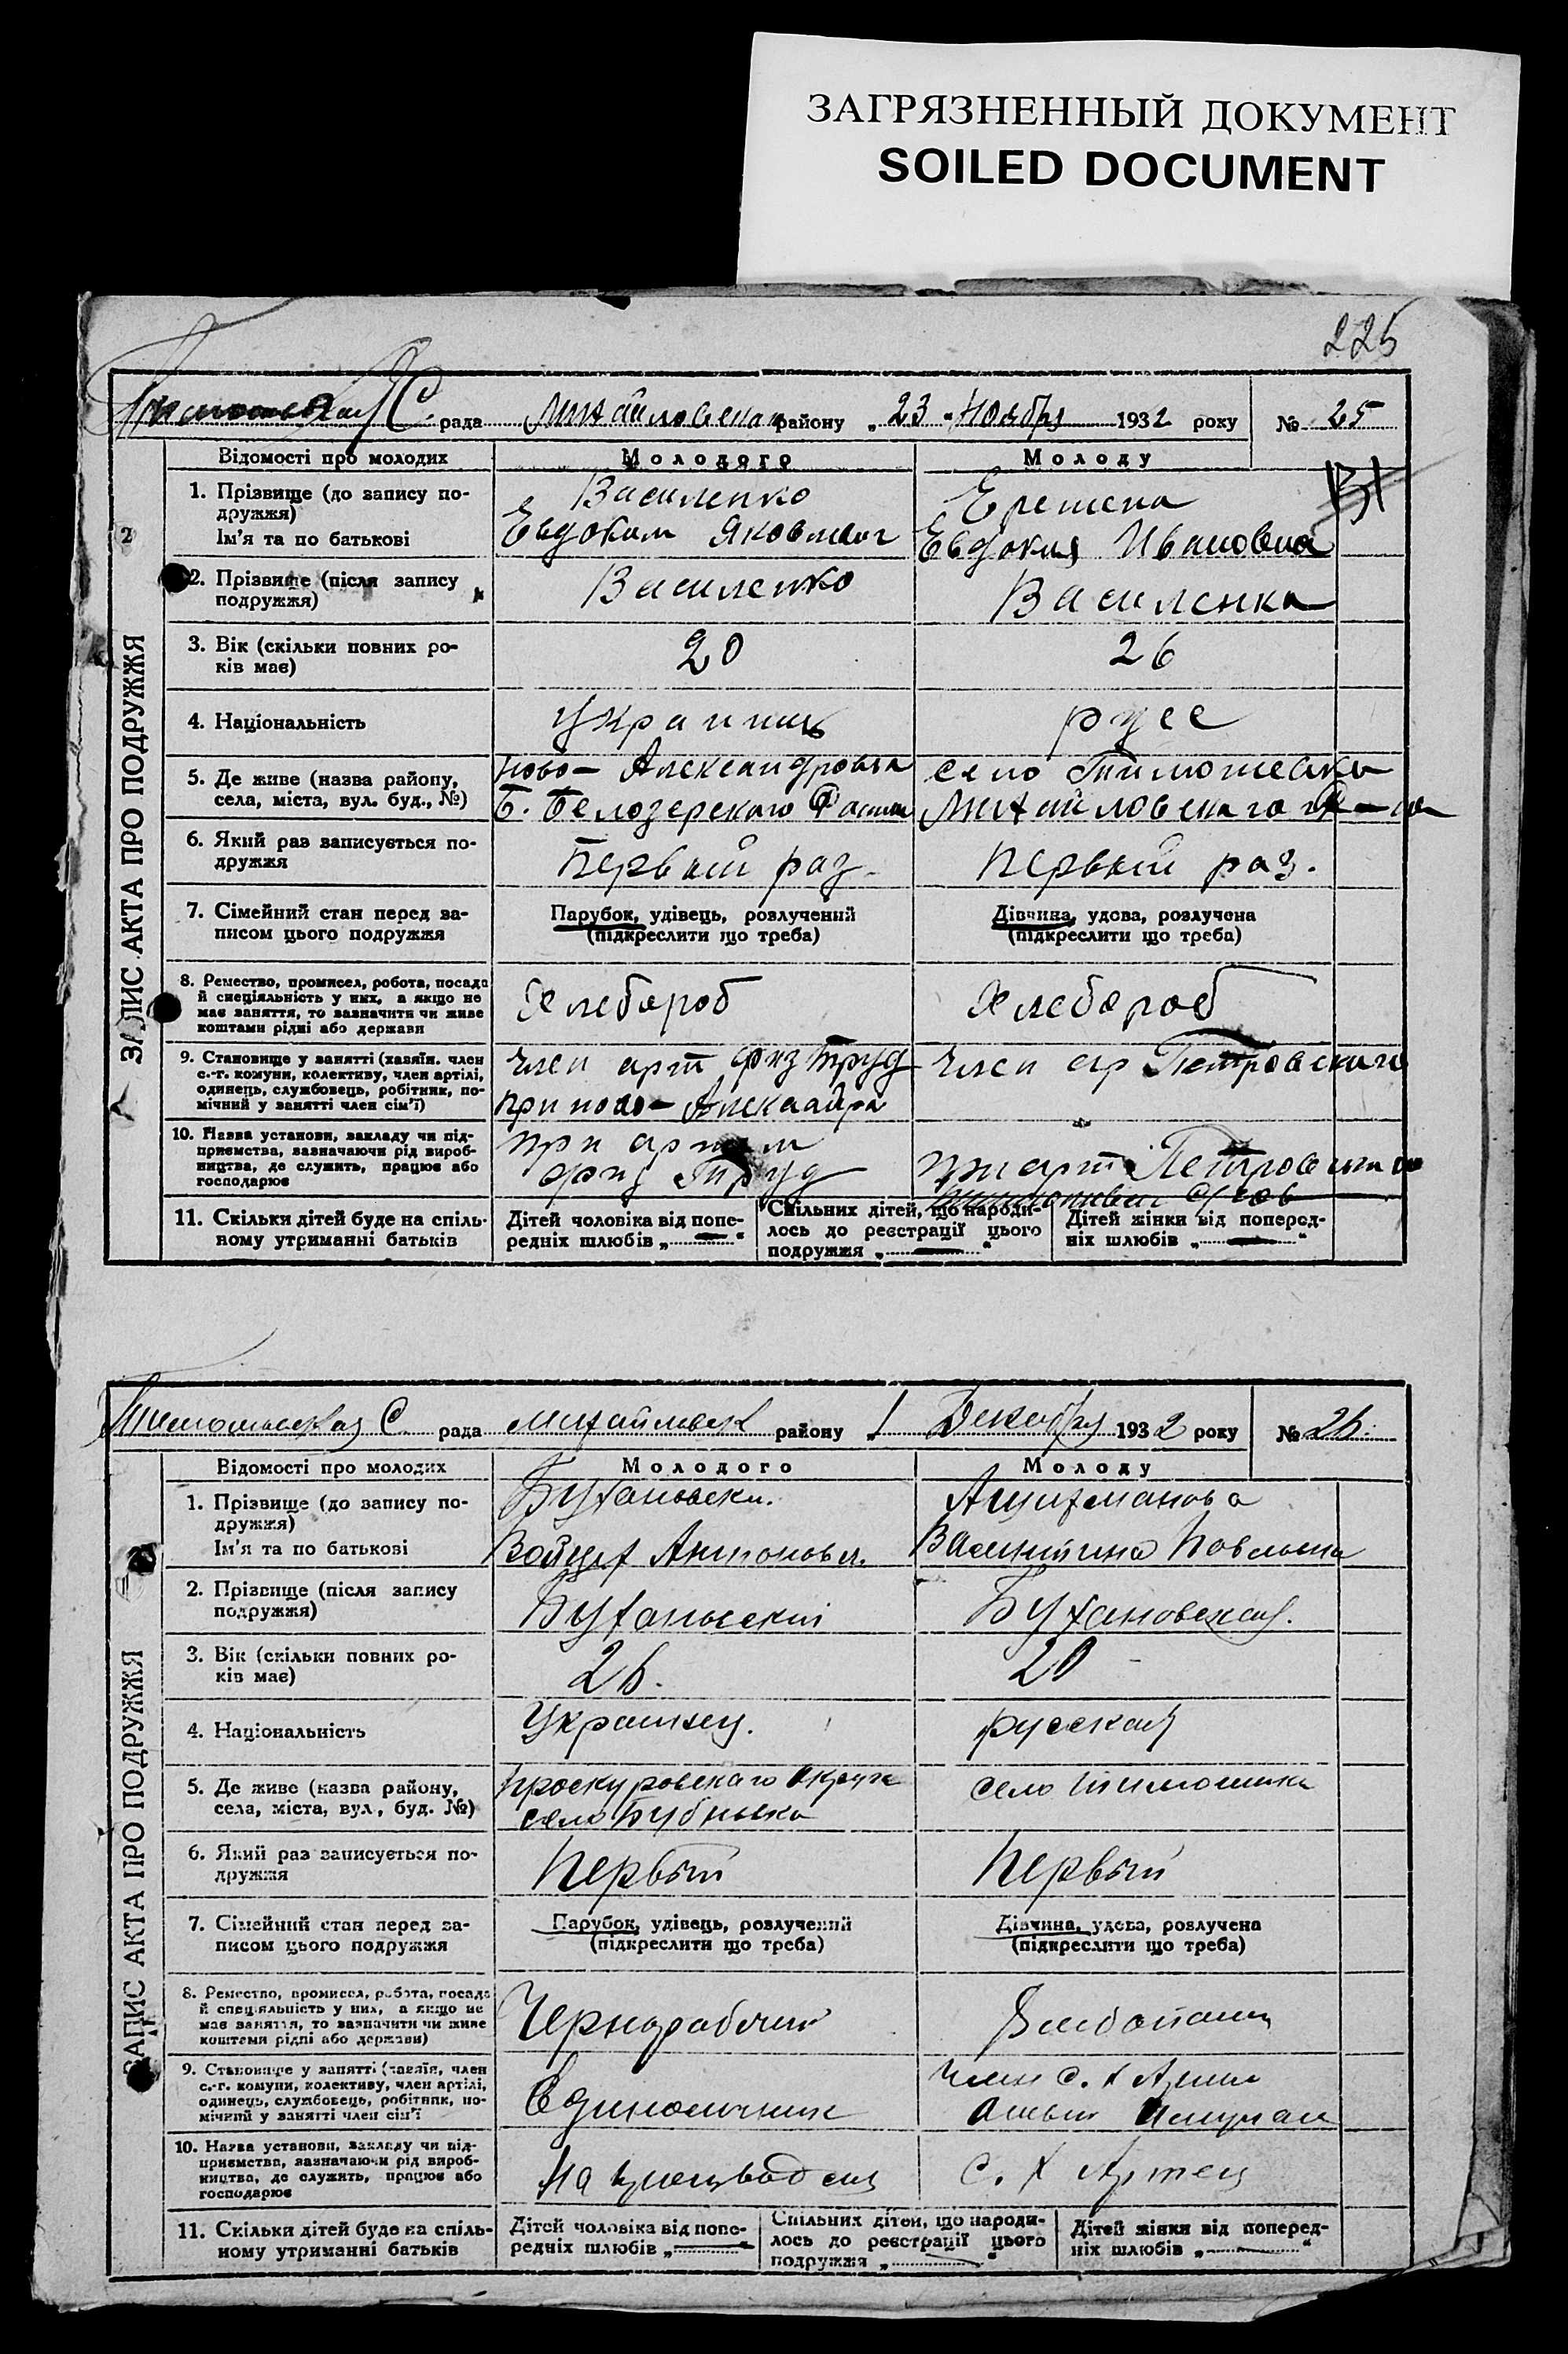 ЗАГРЯЗНЕННЫЙ ДОКУМЕНТ
SOILED DOCUMENT
225
С. рада Михайловская району „ 23 " Ноября 1932 року № 25
ЗАПИС АКТА ПРО ПОДРУЖЖЯ
Відомості про молодих Молодого Молоду
1. Прізвище (до запису по-
дружжя)
Ім'я та по батькові
Василенко
Евдоким Яковлевич
Еремена
Евдокия Ивановна
2. Прізвище (після запису
подружжя)
Василенко
Василенка
3. Вік (скільки повних ро-
ків має)
20
26
4. Національність
русс
5. Де живе (назва району,
села, міста, вул. буд., №)
Ново-Александровка
Б. Белозерского
село Тимошевка
Михайловского
6. Який раз записується по-
дружжя
Первый раз.
Первый раз.
7. Сімейний стан перед за-
писом цього подружжя
Парубок, удівець, розлучений
(підкреслити що треба)
Дівчина, удова, розлучена
(підкреслити що треба)
8. Ремество, промисел, робота, посада
й спеціяльність у них, а якщо не
має заняття, то зазначити чи живе
коштами рідні або держави
Хлебороб
Хлебороб
9. Становище у занятті (хазяїн, член
с.-г. комуни, колективу, член артілі,
одинець, службовець, робітник, по-
мічний у занятті член сім'ї)
Член арт физ Труд
при ново-
Член ар Петровского
10. Назва установи, закладу чи під-
приємства, зазначаючи рід вироб-
ництва, де служить, працює або
господарює
при
физ Труд
при арт Петровского
11. Скільки дітей буде на спіль-
ному утриманні батьків
Дітей чоловіка від попе-
редніх шлюбів „ — "
Спільних дітей, що народи-
лось до реєстрації цього
подружжя „ — "
Дітей жінки від поперед-
ніх шлюбів „ — "
С. рада району „ 1 Декабря 1932 року № 26.
ЗАПИС АКТА ПРО ПОДРУЖЖЯ
Відомості про молодих Молодого Молоду
1. Прізвище (до запису по-
дружжя)
Ім'я та по батькові
Бухановски.
Войцех
2. Прізвище (після запису
подружжя)
Бухановский
Бухановская.
3. Вік (скільки повних ро-
ків має)
26.
20
4. Національність
Украинец.
русская
5. Де живе (назва району,
села, міста, вул., буд. №)
Проскуровского Округа
село
село
6. Який раз записується по-
дружжя
Первый
Первый
7. Сімейний стан перед за-
писом цього подружжя
Парубок, удівець, розлучений
(підкреслити що треба)
Дівчина, удова, розлучена
(підкреслити що треба)
8. Ремество, промисел, робота, посада
й спеціяльність у них, а якщо не
має заняття, то зазначити чи живе
коштами рідні або держави)
Чернорабочий
9. Становище у занятті (хазяїн, член
с.-г. комуни, колективу, член артілі,
одинець, службовець, робітник, по-
мічний у занятті член сім'ї
Единоличник
член С. Х
10. Назва установи, закладу чи під-
приємства, зазначаючи рід вироб-
ництва, де служить, працює або
господарює
На
С. Х
11. Скільки дітей буде на спіль-
ному утриманні батьків
Дітей чоловіка від попе-
редніх шлюбів „ — "
Спільних дітей, що народи-
лось до реєстрації цього
подружжя „ — "
Дітей жінки від поперед-
ніх шлюбів „ — "